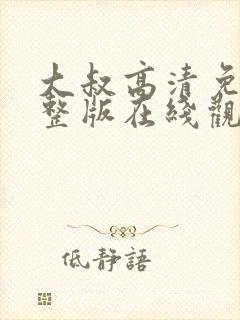 大叔高清免
整版在綫觀
低靜語